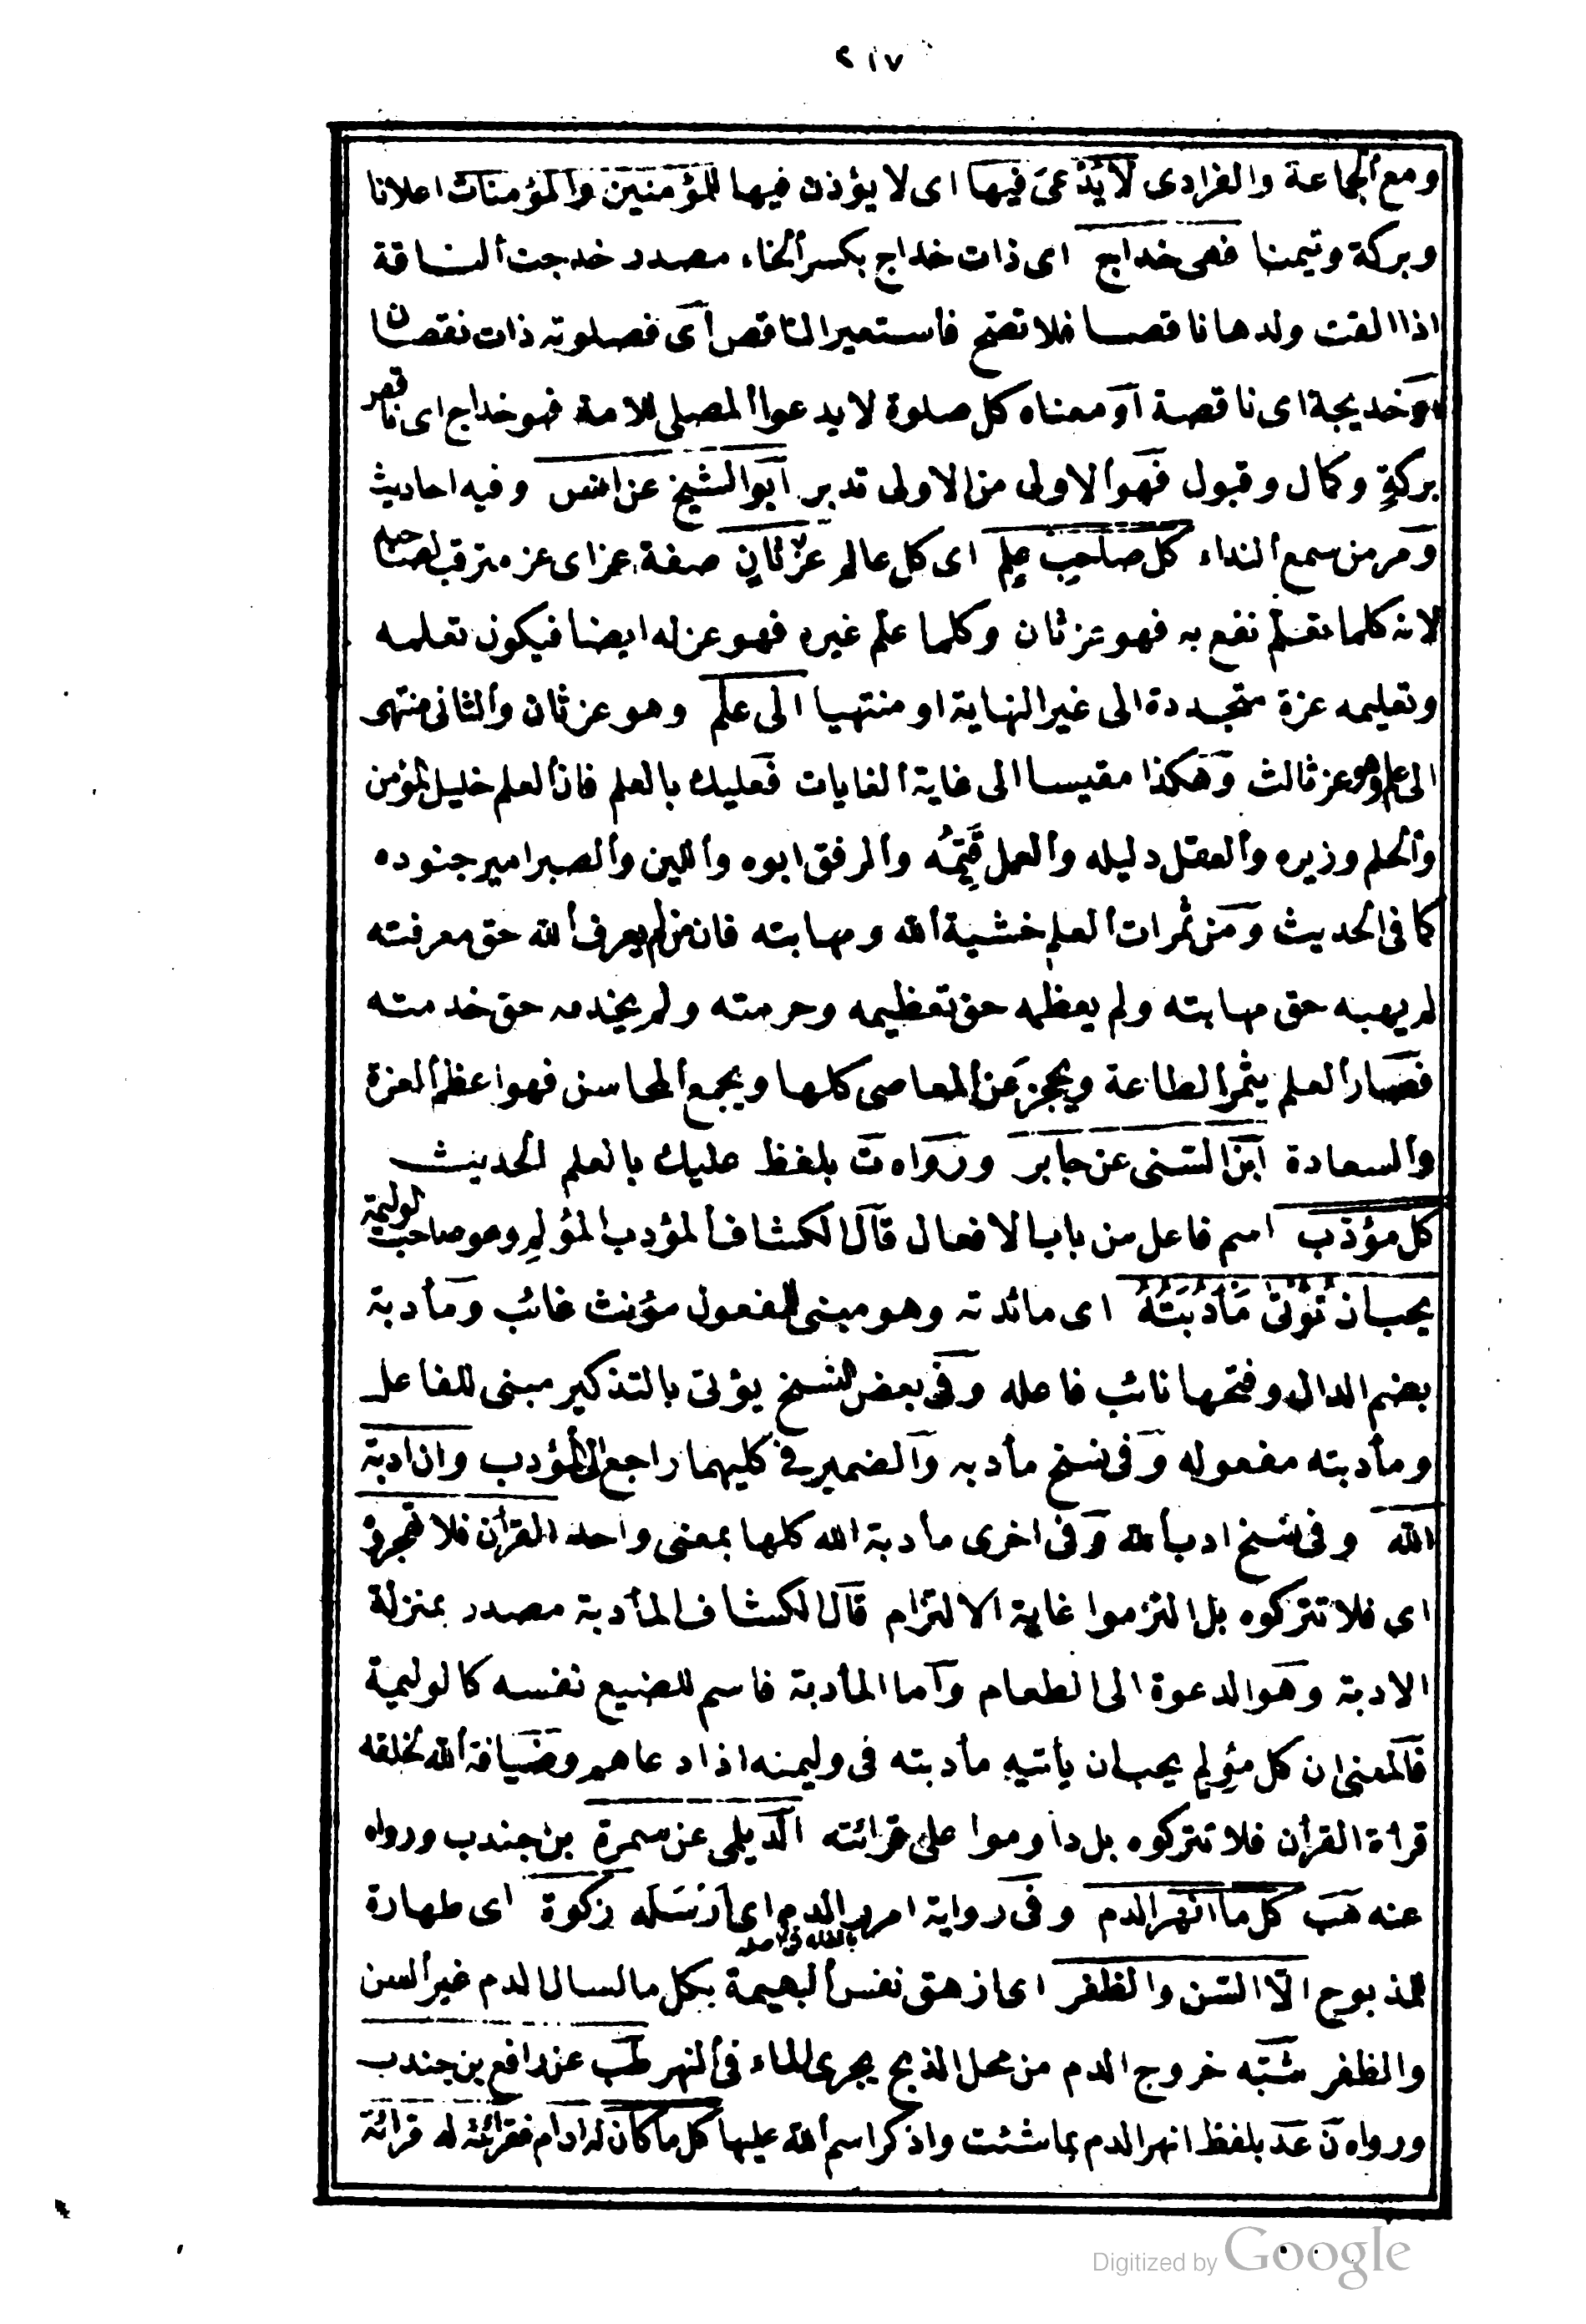 ٢١٧
ومع الجماعة والفرادى لا يُدْعىَ فيها اى لا يؤذن فيها للمؤمنين والمؤمنات اعلانا
وبركة وتيمنا فهى خداج اى ذات خداج بكسر الخاء مصدر خدجت الناقة
اذا القت ولدها ناقصا فلا تصح فاستعير الناقص اى فصلوته ذات نقصان
وخديجة اى ناقصة او معناه كل صلوة لا يدعوا المصلى للامة فهو خداج اى ناقص
بركةٍ وكمال وقبول فهو الاولى من الاولى تدبر ابو الشيخ عن انس وفيه احاديث
ومر من سمع النداء كل صاحبِ علم اى كل عالم عزٌ ثانٍ صفة عز اى عزه مترقب لصاحبه
لانه كلما تعلم نفع به فهو عز ثان وكلما علم غيره فهو عز له ايضا فيكون تعلمه
وتعليمه عزة متجددة الى غير النهاية او منتهيا الى علم وهو عز ثان والثانى منتهى
الى علم وهو عز ثالث وهكذا مقيسا الى غاية الغايات فعليك بالعلم فان العلم خليل المؤمن
والحلم وزيره والعقل دليله والعمل قَيِّمُه والرفق ابوه واللين والصبر امير جنوده
كما فى الحديث ومن ثمرات العلم خشية الله ومهابته فان من لم يعرف الله حق معرفته
لم يهبه حق مهابته ولم يعظمه حق تعظيمه وحرمته ولم يخدمه حق خدمته
فصار العلم يثمر الطاعة ويحجز عن المعاصى كلها ويجمع المحاسن فهو اعظم العزة
والسعادة ابن السنى عن جابر ورواه ت بلفظ عليك بالعلم الحديث
كل مؤدب اسم فاعل من باب الافعال قال الكشاف المؤدب المؤلم وهو صاحب الوليمة
يحب ان تُؤْتىَ مَأْدُبَتُهُ اى مائدته وهو مبنى للمفعول مؤنث غائب ومأدبة
بضم الدال وفتحها نائب فاعله وفى بعض النسخ يؤتى بالتذكير مبنى للفاعل
ومأدبته مفعوله وفى نسخ مأدبه والضمير فى كليهما راجع الى المؤدب وان ادبة
الله وفى نسخ ادب الله وفى اخرى مأدبة الله كلها بمعنى واحد القرآن فلا تهجروه
اى فلا تتركوه بل التزموا غاية الالتزام قال الكشاف المأدبة مصدر بمنزلة
الادبة وهو الدعوة الى الطعام واما المأدبة فاسم للضيع نفسه كالوليمة
فالمعنى ان كل مؤلم يحب ان يأتيه مأدبته فى وليمنه اذا دعاهم وضيافة الله لخلقه
قرأة القرأن فلا تتركوه بل داوموا على قرائته الديلمى عن سمرة بن جندب ورواه
عنه هب كل ما انهر الدم وفى رواية امر الدم اى اَرْسَلَه زكوة اى طهارة
للمذبوح الا السن والظفر اى ازهق نفس البهيمة بكل ما اسال الدم غير السن
والظفر شبه خروج الدم من محل الذبح بجرى الماء فى النهر طب عن رافع بن جندب
ورواه ن عد بلفظ انهر الدم بما شئت واذكر اسم الله عليها كل ما كان له امام فقرائته له قرائة
Digitized by Google